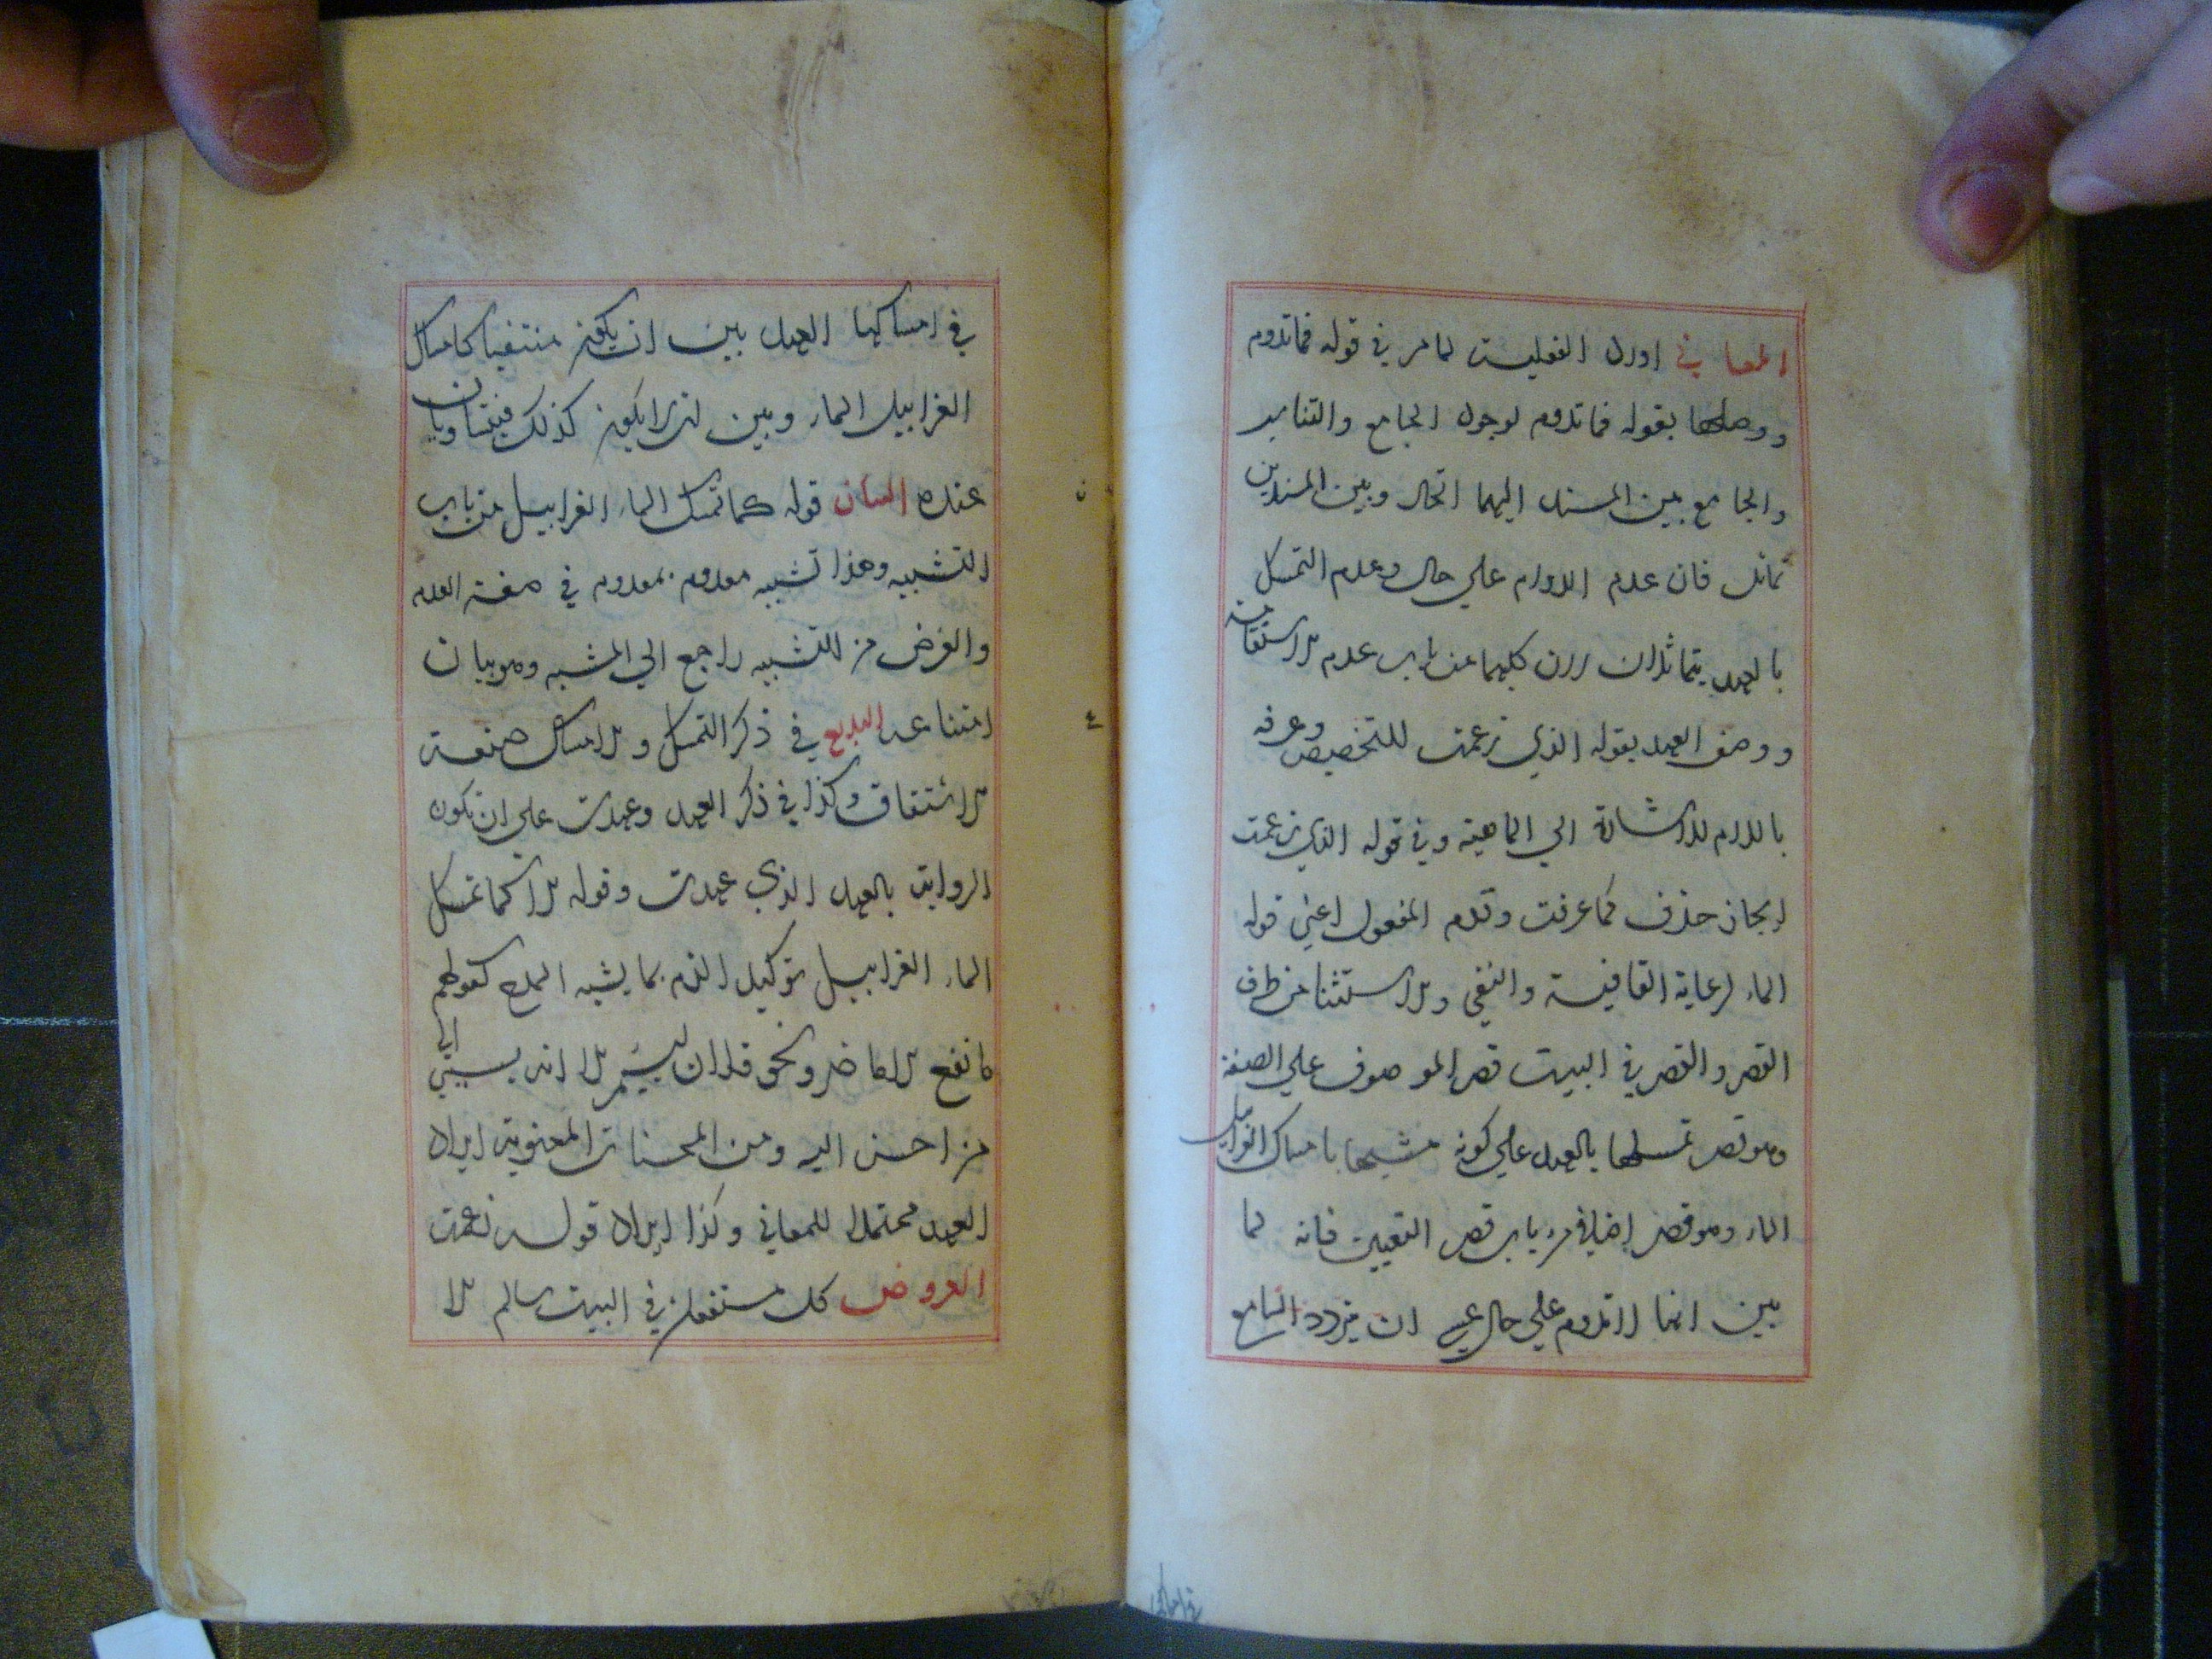 المعاني اورد الفعلية لما مر في قوله فما تدوم
ووصلها بقوله فما تدوم لوجود الجامع والتناسب
والجامع بين المسند اليهما اتحاد وبين المسندين
تماثل فان عدم الدوام علي حال وعدم التمسك
بالعهد يتماثلان لان كليهما من باب عدم الاستقامة
ووصف العهد بقوله الذي زعمت للتخصيص وعرفه
باللام للاشارة الي الماهية وفي قوله الذي زعمت
ايجاز حذف كما عرفت وقدم المفعول اعني قوله
الماء لرعاية القافية والنفي والاستثنا من طرف
القصر والقصر في البيت قصر الموصوف علي الصفة
وهو قصر تمسكها بالعهد علي كونه مشبها بامساك الغرابيل
الماء وهو قصر اضافي من باب قصر التعيين فانه لما
بين انها لا تدوم علي حال عسي ان يتردد السامع
في امساكها العهد بين ان يكون منتفيا كامساك
الغرابيل الماء وبين ان لا يكون كذلك فيتساويان
عنده البيان قوله كما تمسك الماء الغرابيل من باب
التشبيه وهذا تشبيه معدوم بمعدوم في صفة العدم
والغرض من التشبيه راجع الي المشبه وهو بيان
امتناعه البديع في ذكر التمسك والامساك صنعة
الاشتقاق وكذا في ذكر العهد وعهدت علي ان تكون
الرواية بالعهد الذي عهدت وقوله الا كما تمسك
الماء الغرابيل توكيد الذم بما يشبه المدح كقولهم
ما نفع الا ما ضر ونحو فلان ليتيم الا انه يسيئ الي
من احسن اليه ومن المحسنات المعنوية ايراد
العهد محتملا للمعاني وكذا ايراد قوله زعمت
العروض كل مستفعلن في البيت سالم الا